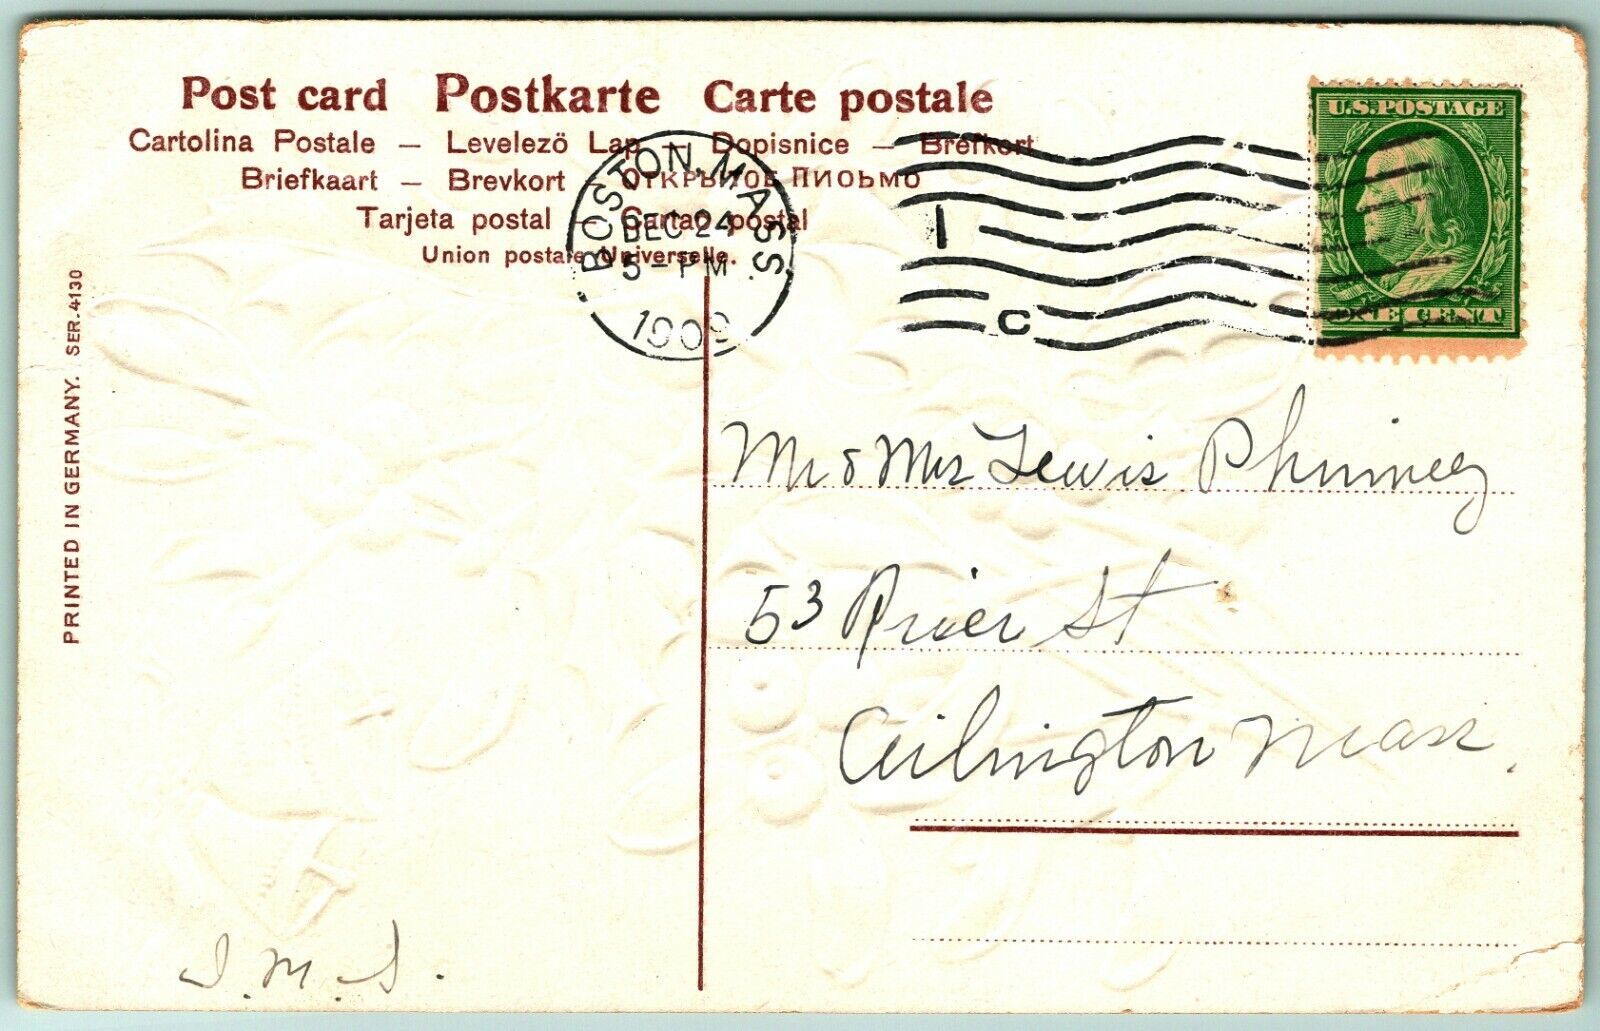 Post card Postkarte Carte postale
Cartolina Postale – Levelező Lap – Dopisnice – Brefkort
Briefkaart – Brevkort – Открытое письмо
Tarjeta postal – Cartao postal
Union postale Universelle.
BOSTON, MASS.
DEC 24
5 – PM
1909
1
C
U.S. POSTAGE
ONE CENT
PRINTED IN GERMANY. SER. 4130
Mr & Mrs Lewis Phinney
53 River St
Arlington Mass.